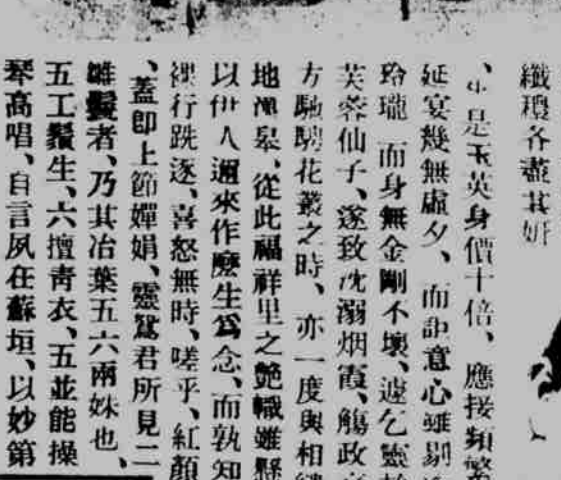 纖瓊各盡其妍
、於是玉英身價十倍、應接頻繁
延宴幾無虛夕、而詎意心雖剔
玲瓏而身無金剛不壞、遽乞靈於
芙蓉仙子、遂致沈溺烟霞、觴政
方馳騁花叢之時、亦一度與相
地漁皋、從此福祥里之艷幟雖懸
以伊人邇來作麼生爲念、而孰知
裸行跣逐、喜怒無時、嗟乎、紅顏
、蓋即上節嬋娟、靈鴛君所見二
雛鬟者、乃其冶葉五六兩妹也、
五工鬚生、六擅青衣、五並能操
琴高唱、自言夙在蘇垣、以妙第